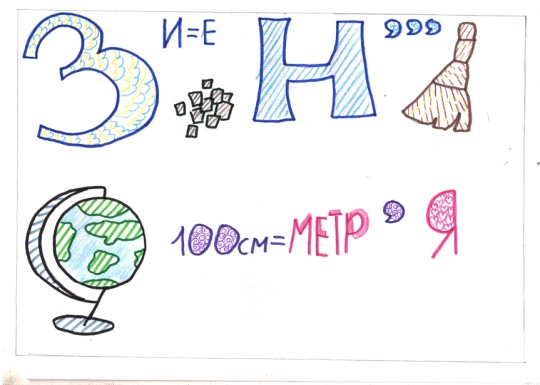 З И=Е Н ,,,
100см=МЕТР , Я